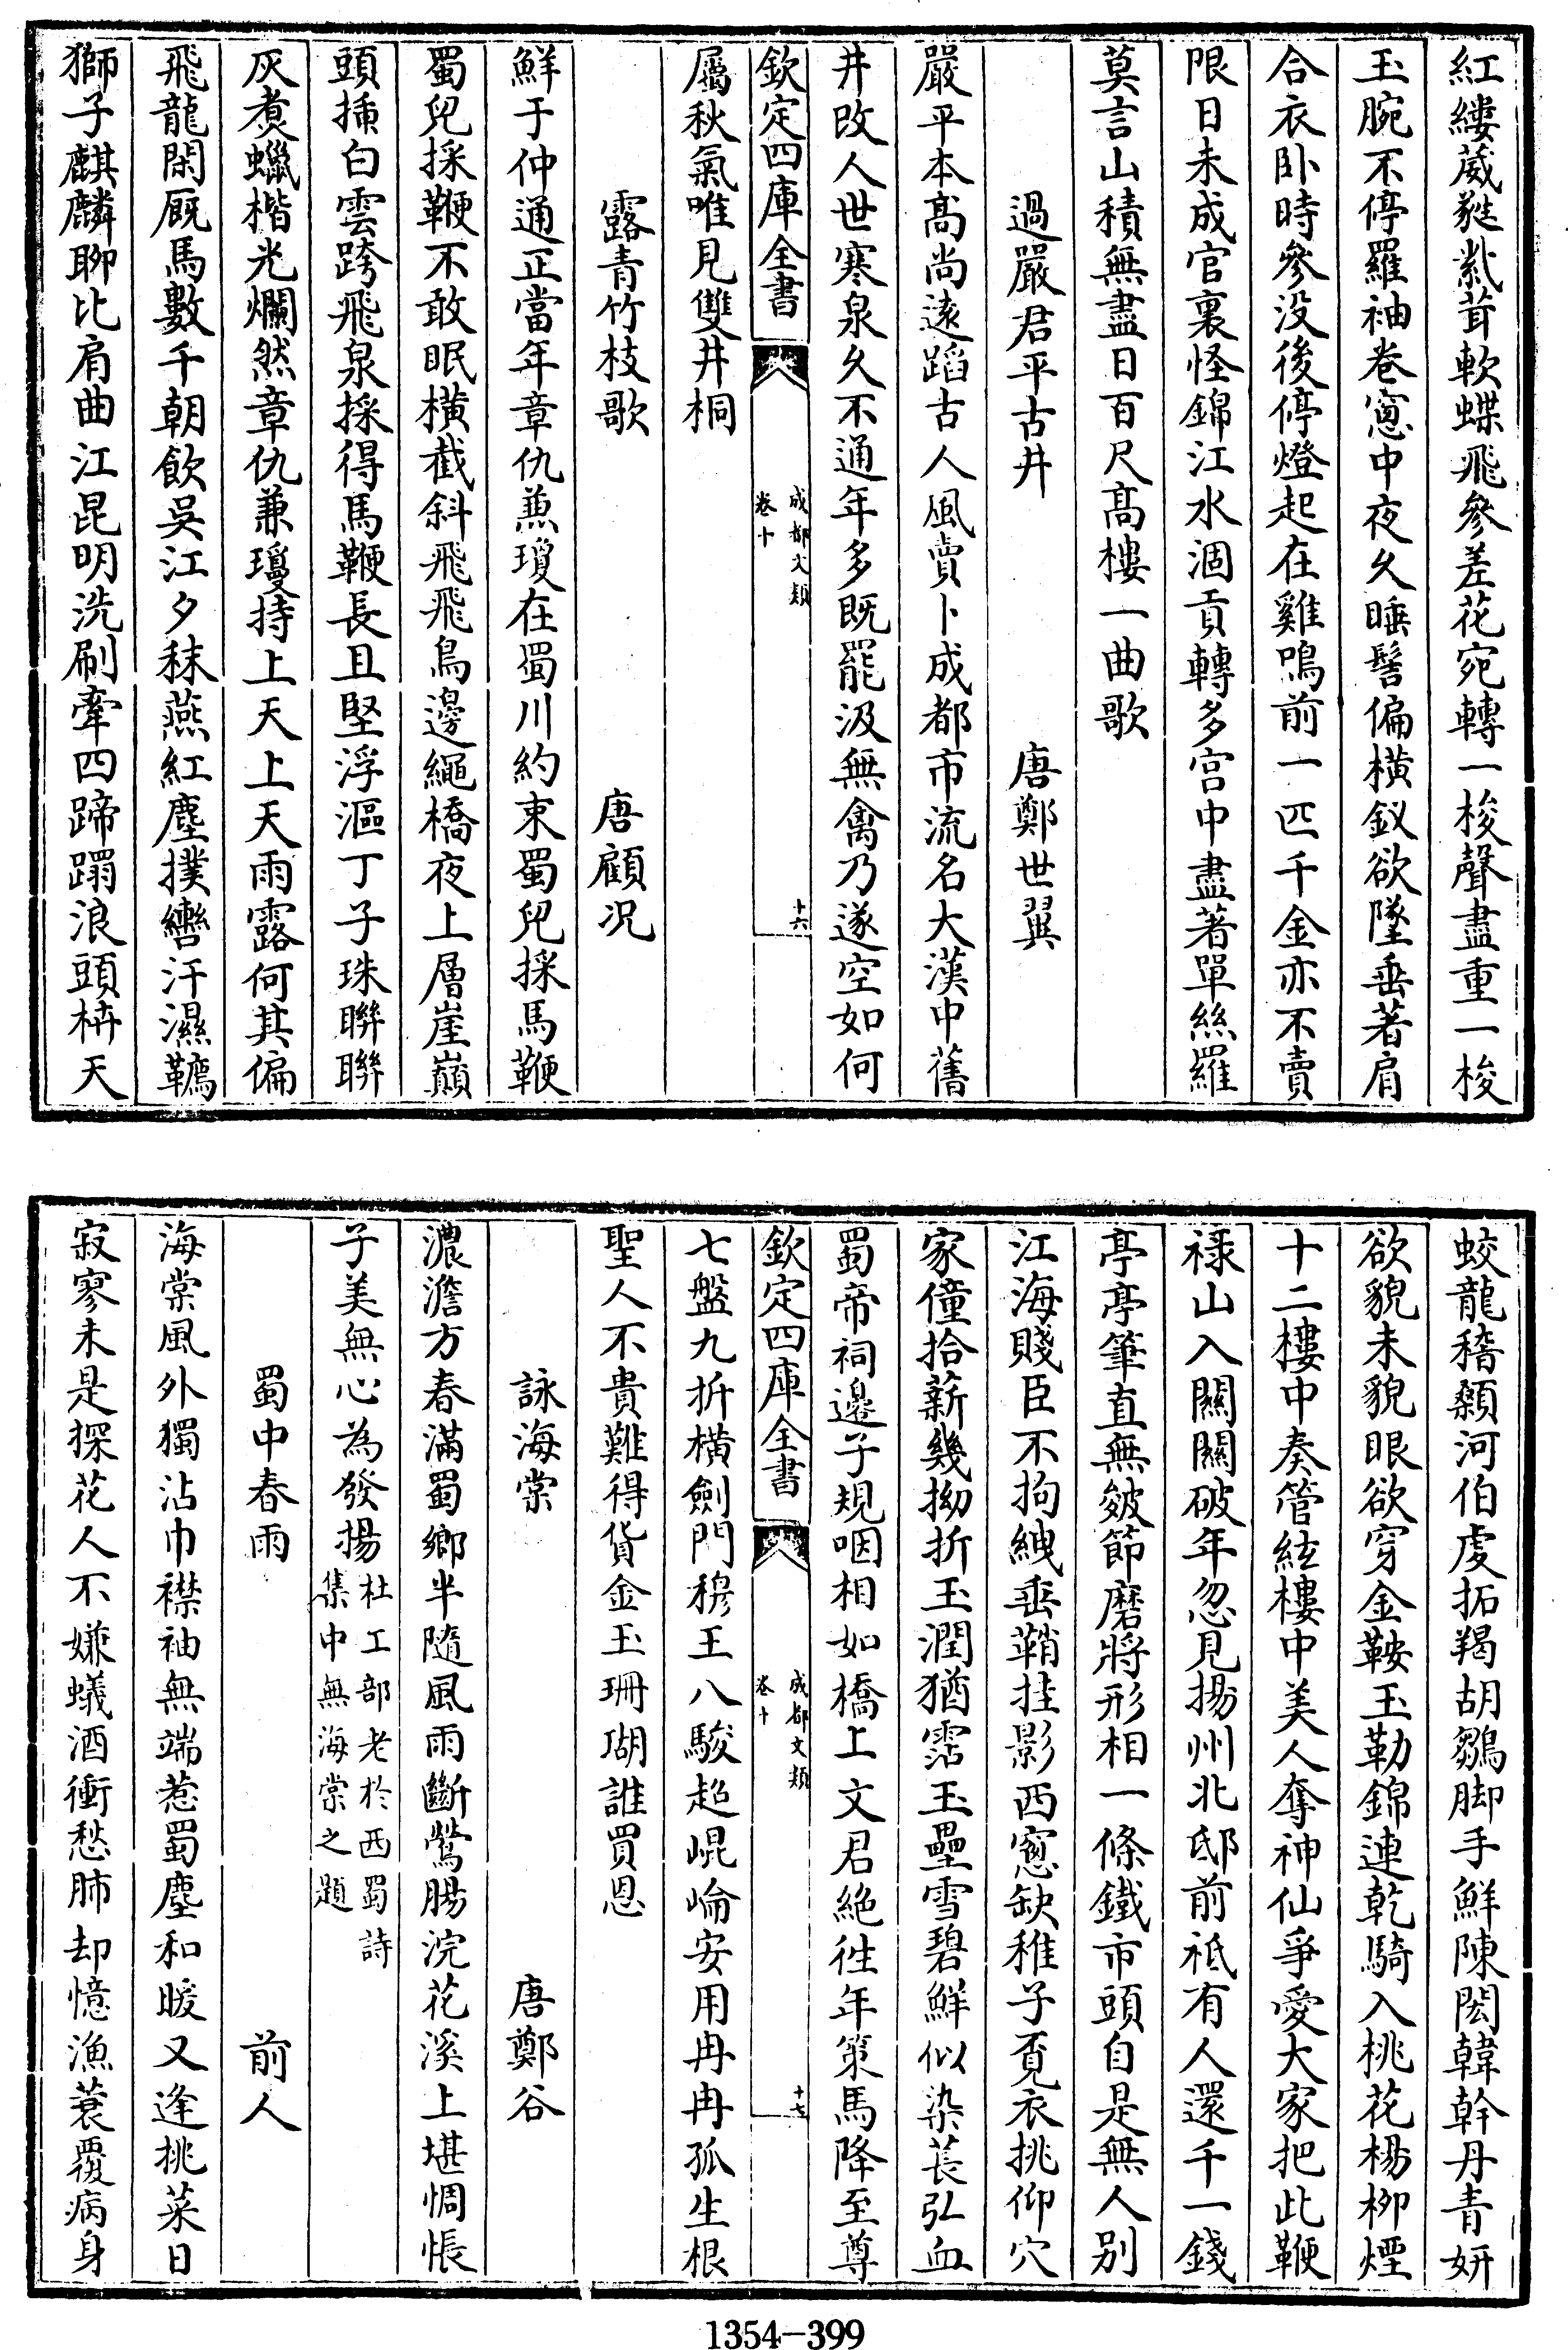 紅縷葳蕤紫茸軟蝶飛參差花宛轉一梭聲盡重一梭
玉腕不停羅袖卷窻中夜久睡髻偏橫釵欲墜垂著肩
合衣卧時參没後停燈起在雞鳴前一匹千金亦不賣
限日未成官裏怪錦江水涸貢轉多宫中盡著單絲羅
莫言山積無盡日百尺髙樓一曲歌
過嚴君平古井 唐鄭世翼
嚴平本髙尚逺蹈古人風賣卜成都市流名大漢中舊
井改人世寒泉久不通年多既罷汲無禽乃遂空如何
欽定四庫全書 成都文類 卷十 十六
屬秋氣唯見雙井桐
露青竹枝歌 唐顧况
鮮于仲通正當年章仇兼瓊在蜀川約束蜀兒採馬鞭
蜀兒採鞭不敢眠橫截斜飛飛鳥邊繩橋夜上層崖巔
頭揷白雲跨飛泉採得馬鞭長且堅浮漚丁子珠聯聯
灰煮蠟楷光爛然章仇兼瓊持上天上天雨露何其偏
飛龍閑廐馬數千朝飲吳江夕秣燕紅塵撲轡汗濕韉
獅子麒麟聊比肩曲江昆明洗刷牽四蹄蹋浪頭枿天
蛟龍稽顙河伯虔拓羯胡雛脚手鮮陳閎韓幹丹青妍
欲貌未貌眼欲穿金鞍玉勒錦連乾騎入桃花楊栁煙
十二樓中奏管絃樓中美人奪神仙爭愛大家把此鞭
禄山入關關破年忽見揚州北邸前祗有人還千一錢
亭亭筆直無皴節磨將形相一條鐵市頭自是無人别
江海賤臣不拘絏垂鞘挂影西窻缺稚子覔衣挑仰穴
家僮拾薪幾拗折玉潤猶霑玉壘雪碧鮮似染萇弘血
蜀帝祠邊子規咽相如橋上文君絶徃年策馬降至尊
欽定四庫全書 成都文類 卷十 十七
七盤九折橫劍門穆王八駿超崐崘安用冉冉孤生根
聖人不貴難得貨金玉珊瑚誰買恩
詠海棠 唐鄭谷
濃澹方春滿蜀鄉半隨風雨斷鶯腸浣花溪上堪惆悵
子美無心為發揚 杜工部老於西蜀詩集中無海棠之題
蜀中春雨 前人
海棠風外獨沾巾襟袖無端惹蜀塵和暖又逢挑菜日
寂寥未是探花人不嫌蟻酒衝愁肺却憶漁蓑覆病身
1354-399